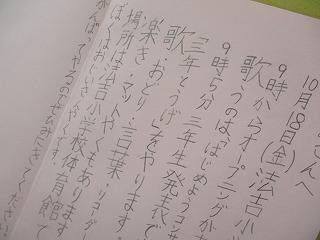 さんへ
10月18日(金)法吉小
9時からオープニングが
歌うのは、はじめようコンサ
9時5分 三年生発表で
「三年とうげ」をやります。
歌 おどり
楽き マット 言葉 リコーダー
場所は法吉小学校体育館で
ぼくはおじいさんやくです。
がんばってやるのでぜひみにきてください。